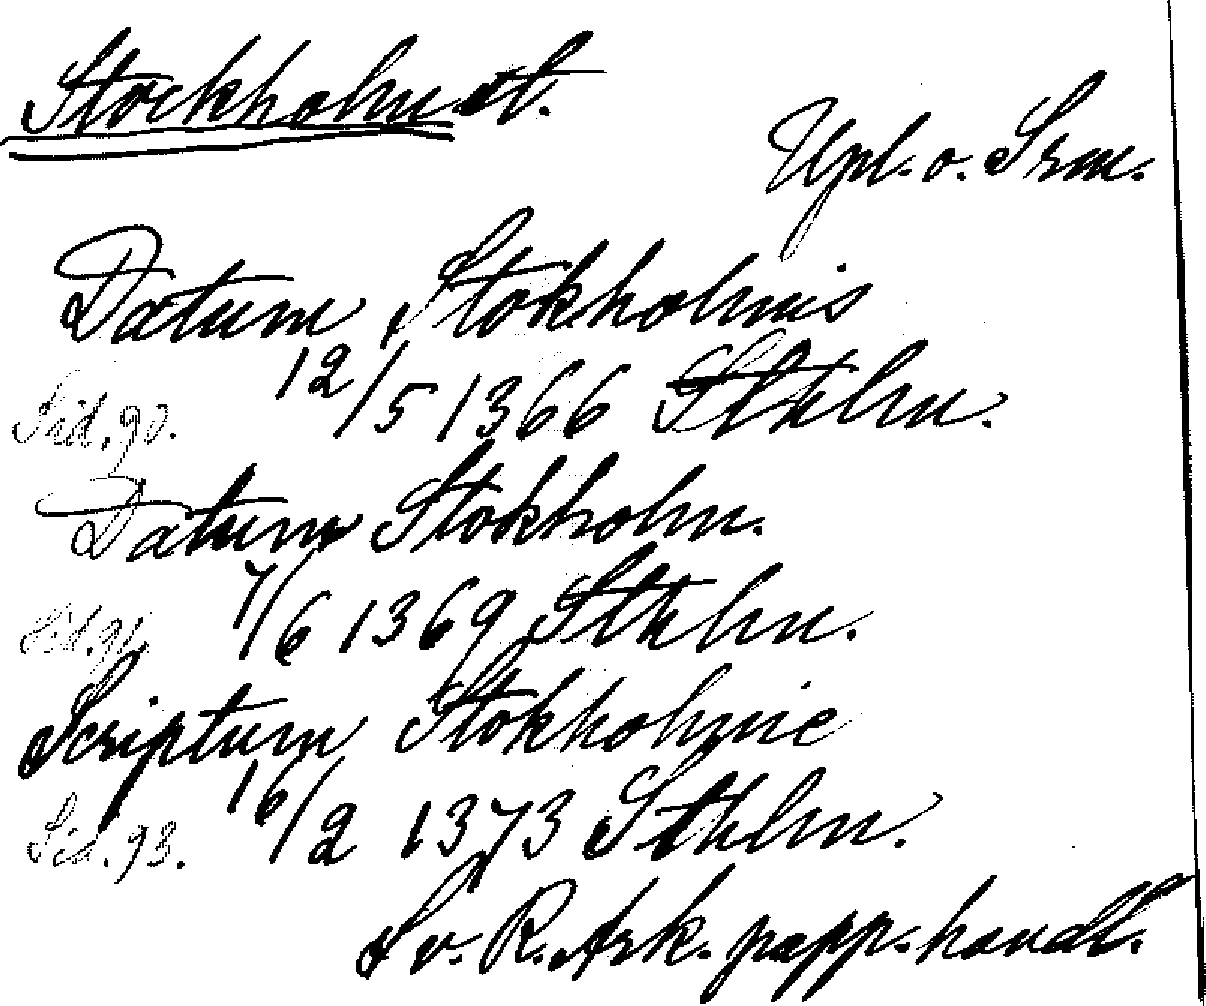 Stockholm st.
Upl. o. Srm.
Datum Stokholmis
Sid. 90. 12/5 1366 Sthlm.
Datum Stokholm.
Sid. 91. 7/6 1369 Sthlm.
Scriptum Stokholmie
Sid. 93. 16/2 1373 Sthlm.
Sv. R. Ark. papp. handl.